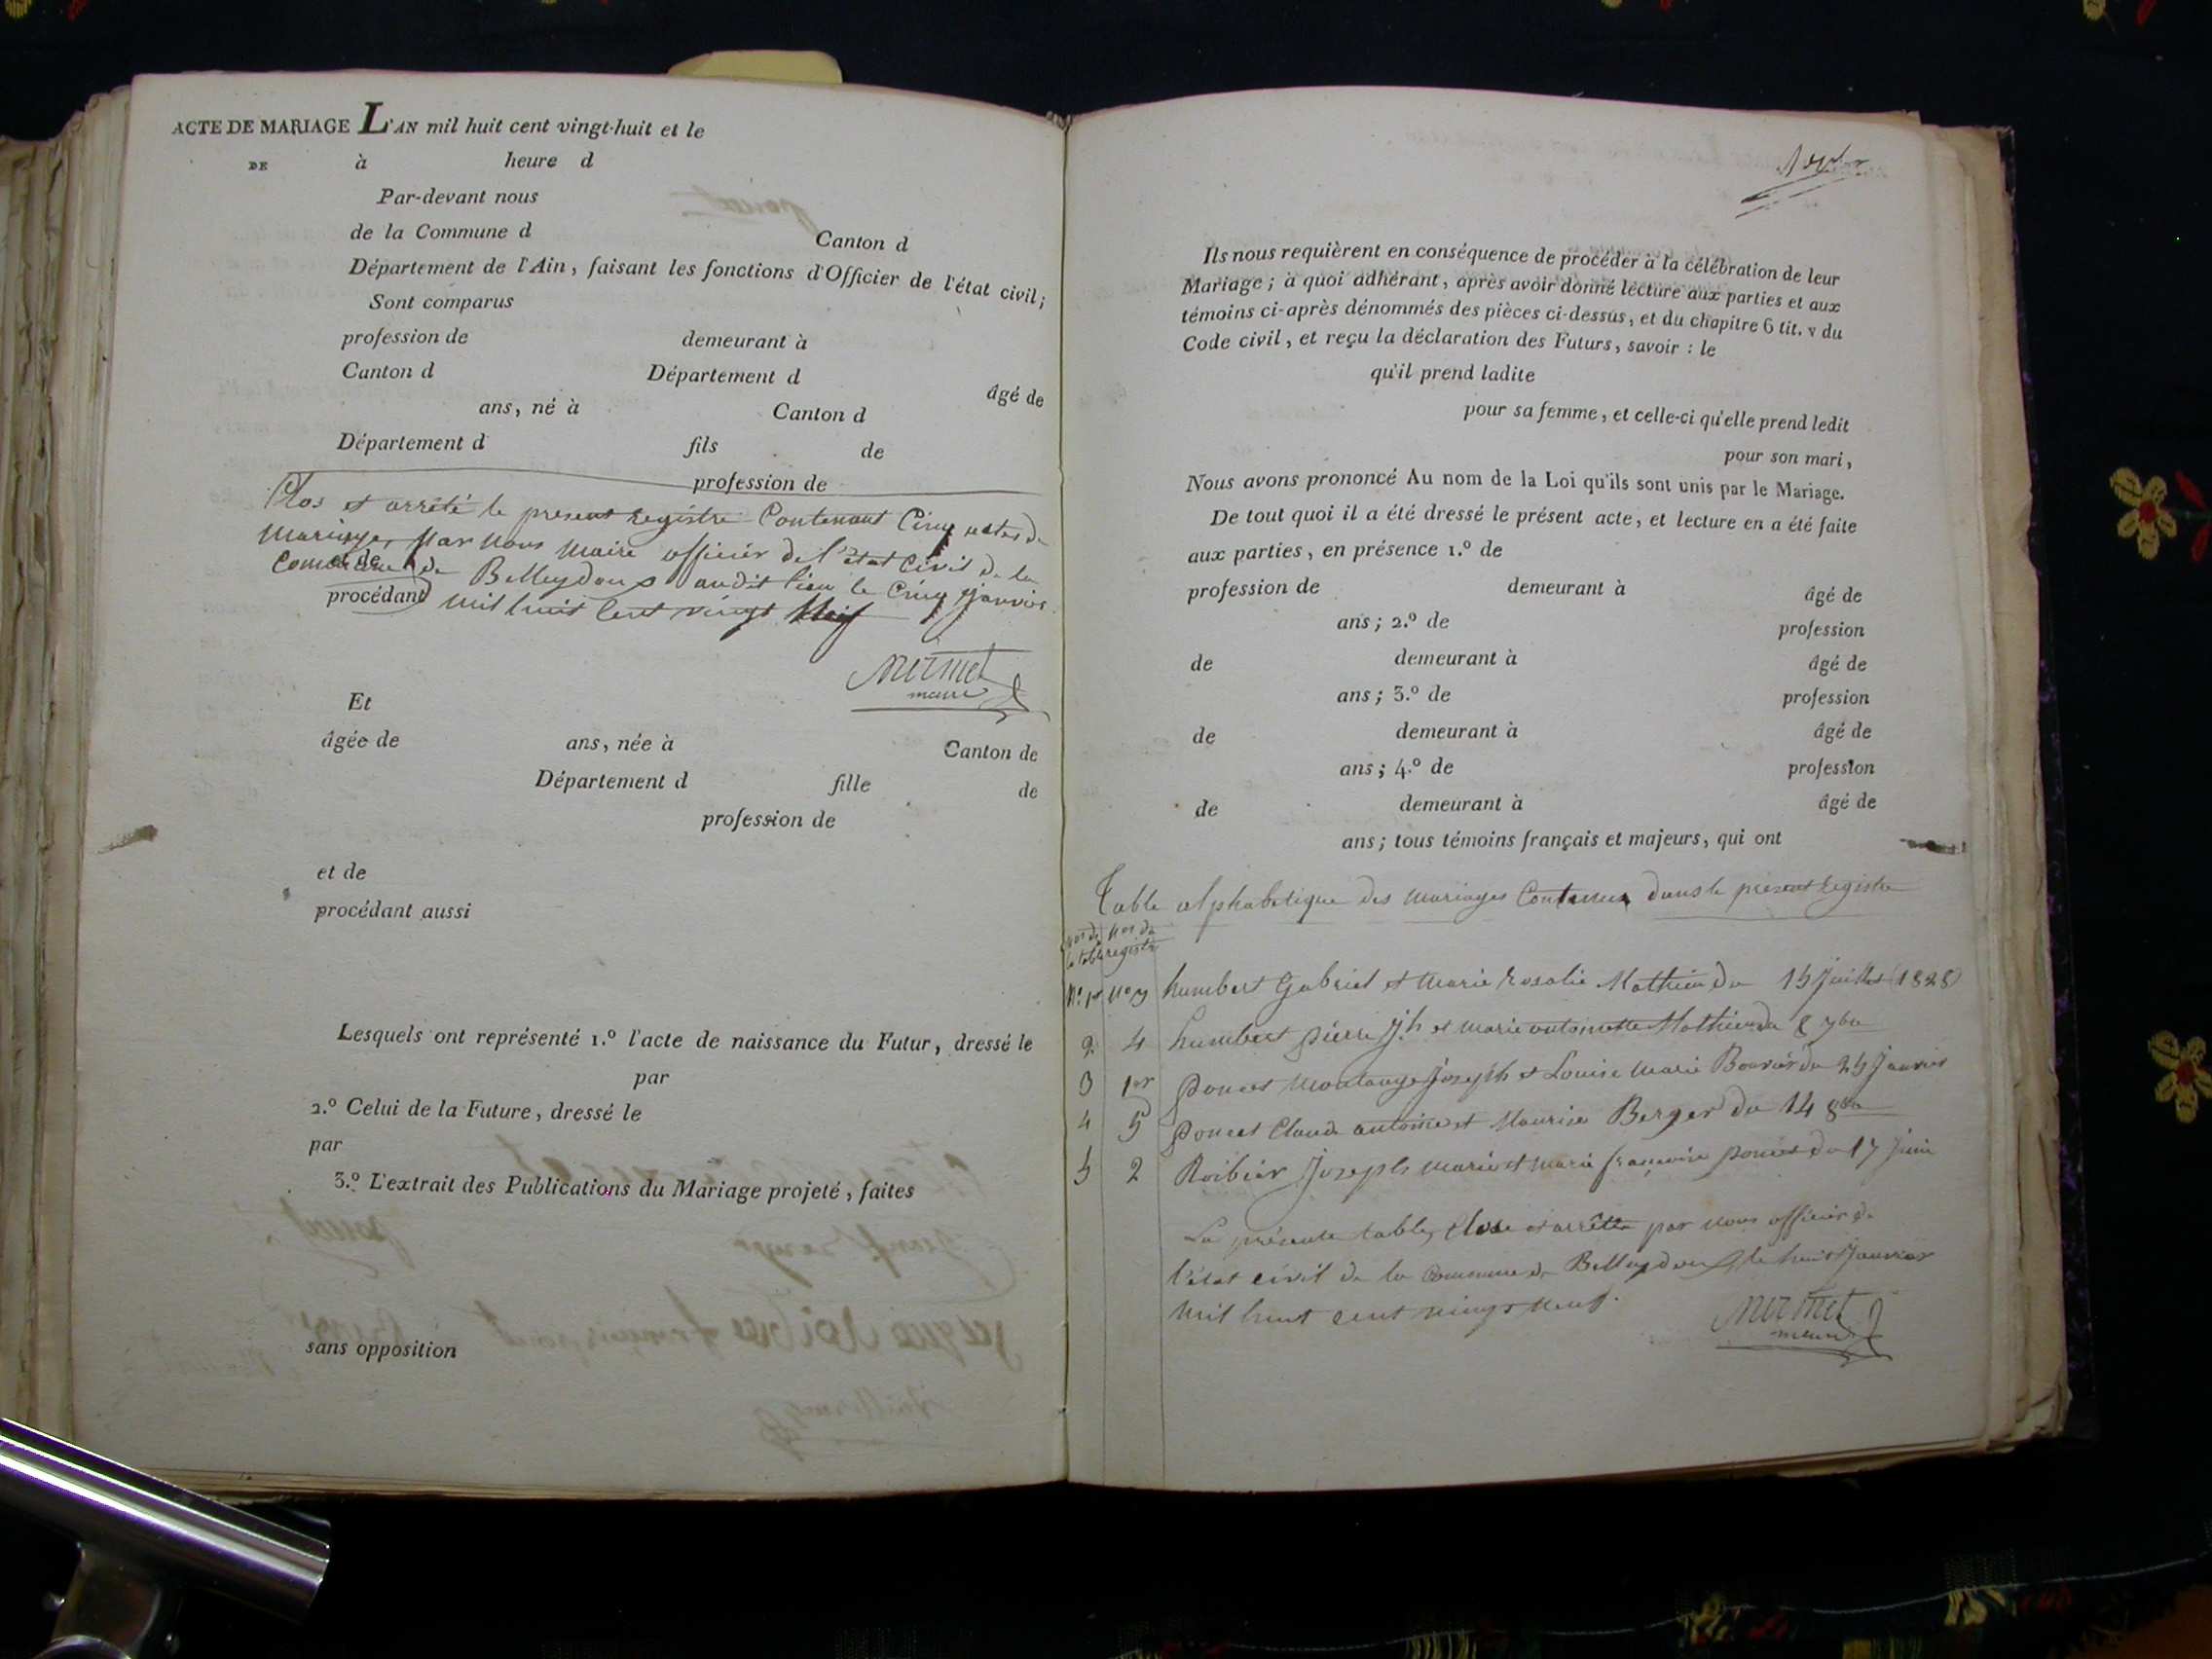 ACTE DE MARIAGE L'AN mil huit cent vingt-huit et le
DE à heure d
Par-devant nous
de la Commune d Canton d
Département de l'Ain, faisant les fonctions d'Officier de l'état civil;
Sont comparus
profession de demeurant à
Canton d Département d âgé de
ans, né à Canton d
Département d fils de
profession de
Clos et arrêté le present registre Contenant Cinq actes de
mariage, par nous maire officier de l'état Civil de la
et de
Commune de Belleydoux audit lieu le Cinq janvier
procédant
mil huit Cent vingt Neuf
Mermet
maire
Et
âgée de ans, née à Canton de
Département d fille de
profession de
et de
procédant aussi
Lesquels ont représenté 1.º l'acte de naissance du Futur, dressé le
par
2.º Celui de la Future, dressé le
par
3.º L'extrait des Publications du Mariage projeté, faites
sans opposition
Ils nous requièrent en conséquence de procéder à la célébration de leur
Mariage; à quoi adhérant, après avoir donné lecture aux parties et aux
témoins ci-après dénommés des pièces ci-dessus, et du chapitre 6 tit. v du
Code civil, et reçu la déclaration des Futurs, savoir : le
qu'il prend ladite
pour sa femme, et celle-ci qu'elle prend ledit
pour son mari,
Nous avons prononcé Au nom de la Loi qu'ils sont unis par le Mariage.
De tout quoi il a été dressé le présent acte, et lecture en a été faite
aux parties, en présence 1.º de
profession de demeurant à âgé de
ans; 2.º de profession
de demeurant à âgé de
ans; 3.º de profession
de demeurant à âgé de
ans; 4.º de profession
de demeurant à âgé de
ans; tous témoins français et majeurs, qui ont
Table alphabetique des mariages Contenus dans le present registre
Nos de Nos du
la table registre
Nº 1er humbert Gabriel et Marie rosalie Mathieu du 15 juillet (1828)
2 4 humbert pierre jh et marie antoinette Mathieu du 8 7bre
3 1er poncet Montange Joseph et Louise Marie Bouvier du 25 Janvier
4 5 poncet Claude antoine et Maurise Berger du 14 8bre
5 2 Roibier Joseph marie et marie françoise poncet du 17 juin
La présente table, Close et arrêtée par nous officier de
l'état civil de la Commune de Belleydoux le huit Janvier
mil huit cent vingt neuf.
Mermet
maire